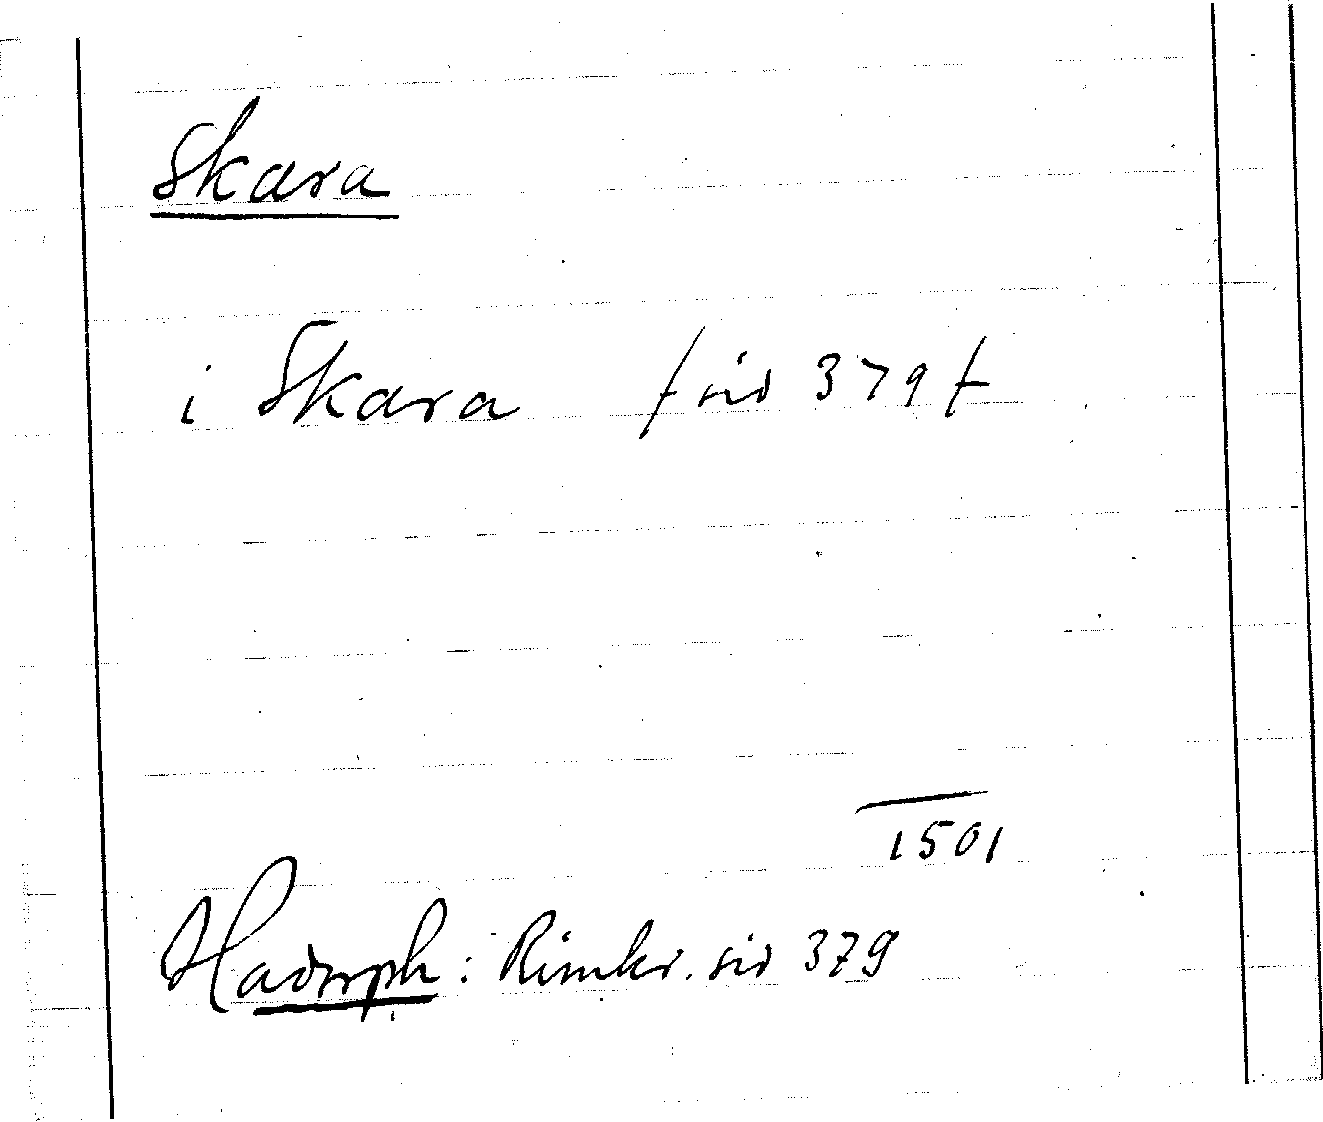 Skara
i Skara /sid 379/
1501
Hadorph: Rimkr. sid 379